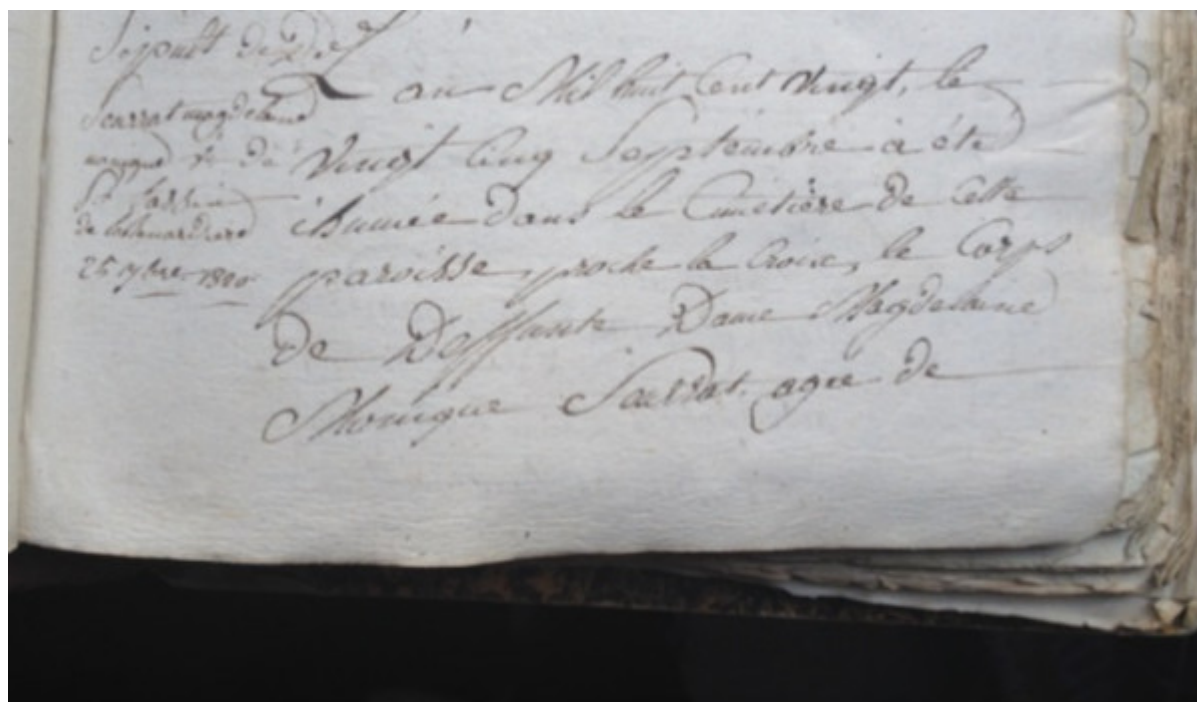 Sépult de
Sarrat magdelaine
monique v. de
Sr
de
25 7bre 1820
L'an Mil huit Cent Vingt, le
Vingt Cinq Septembre à été
ihumée dans le Cimetière de Cette
paroisse, proche la Croix, le Corps
De Deffunte Dame Magdelaine
Monique Sarrat, agée de